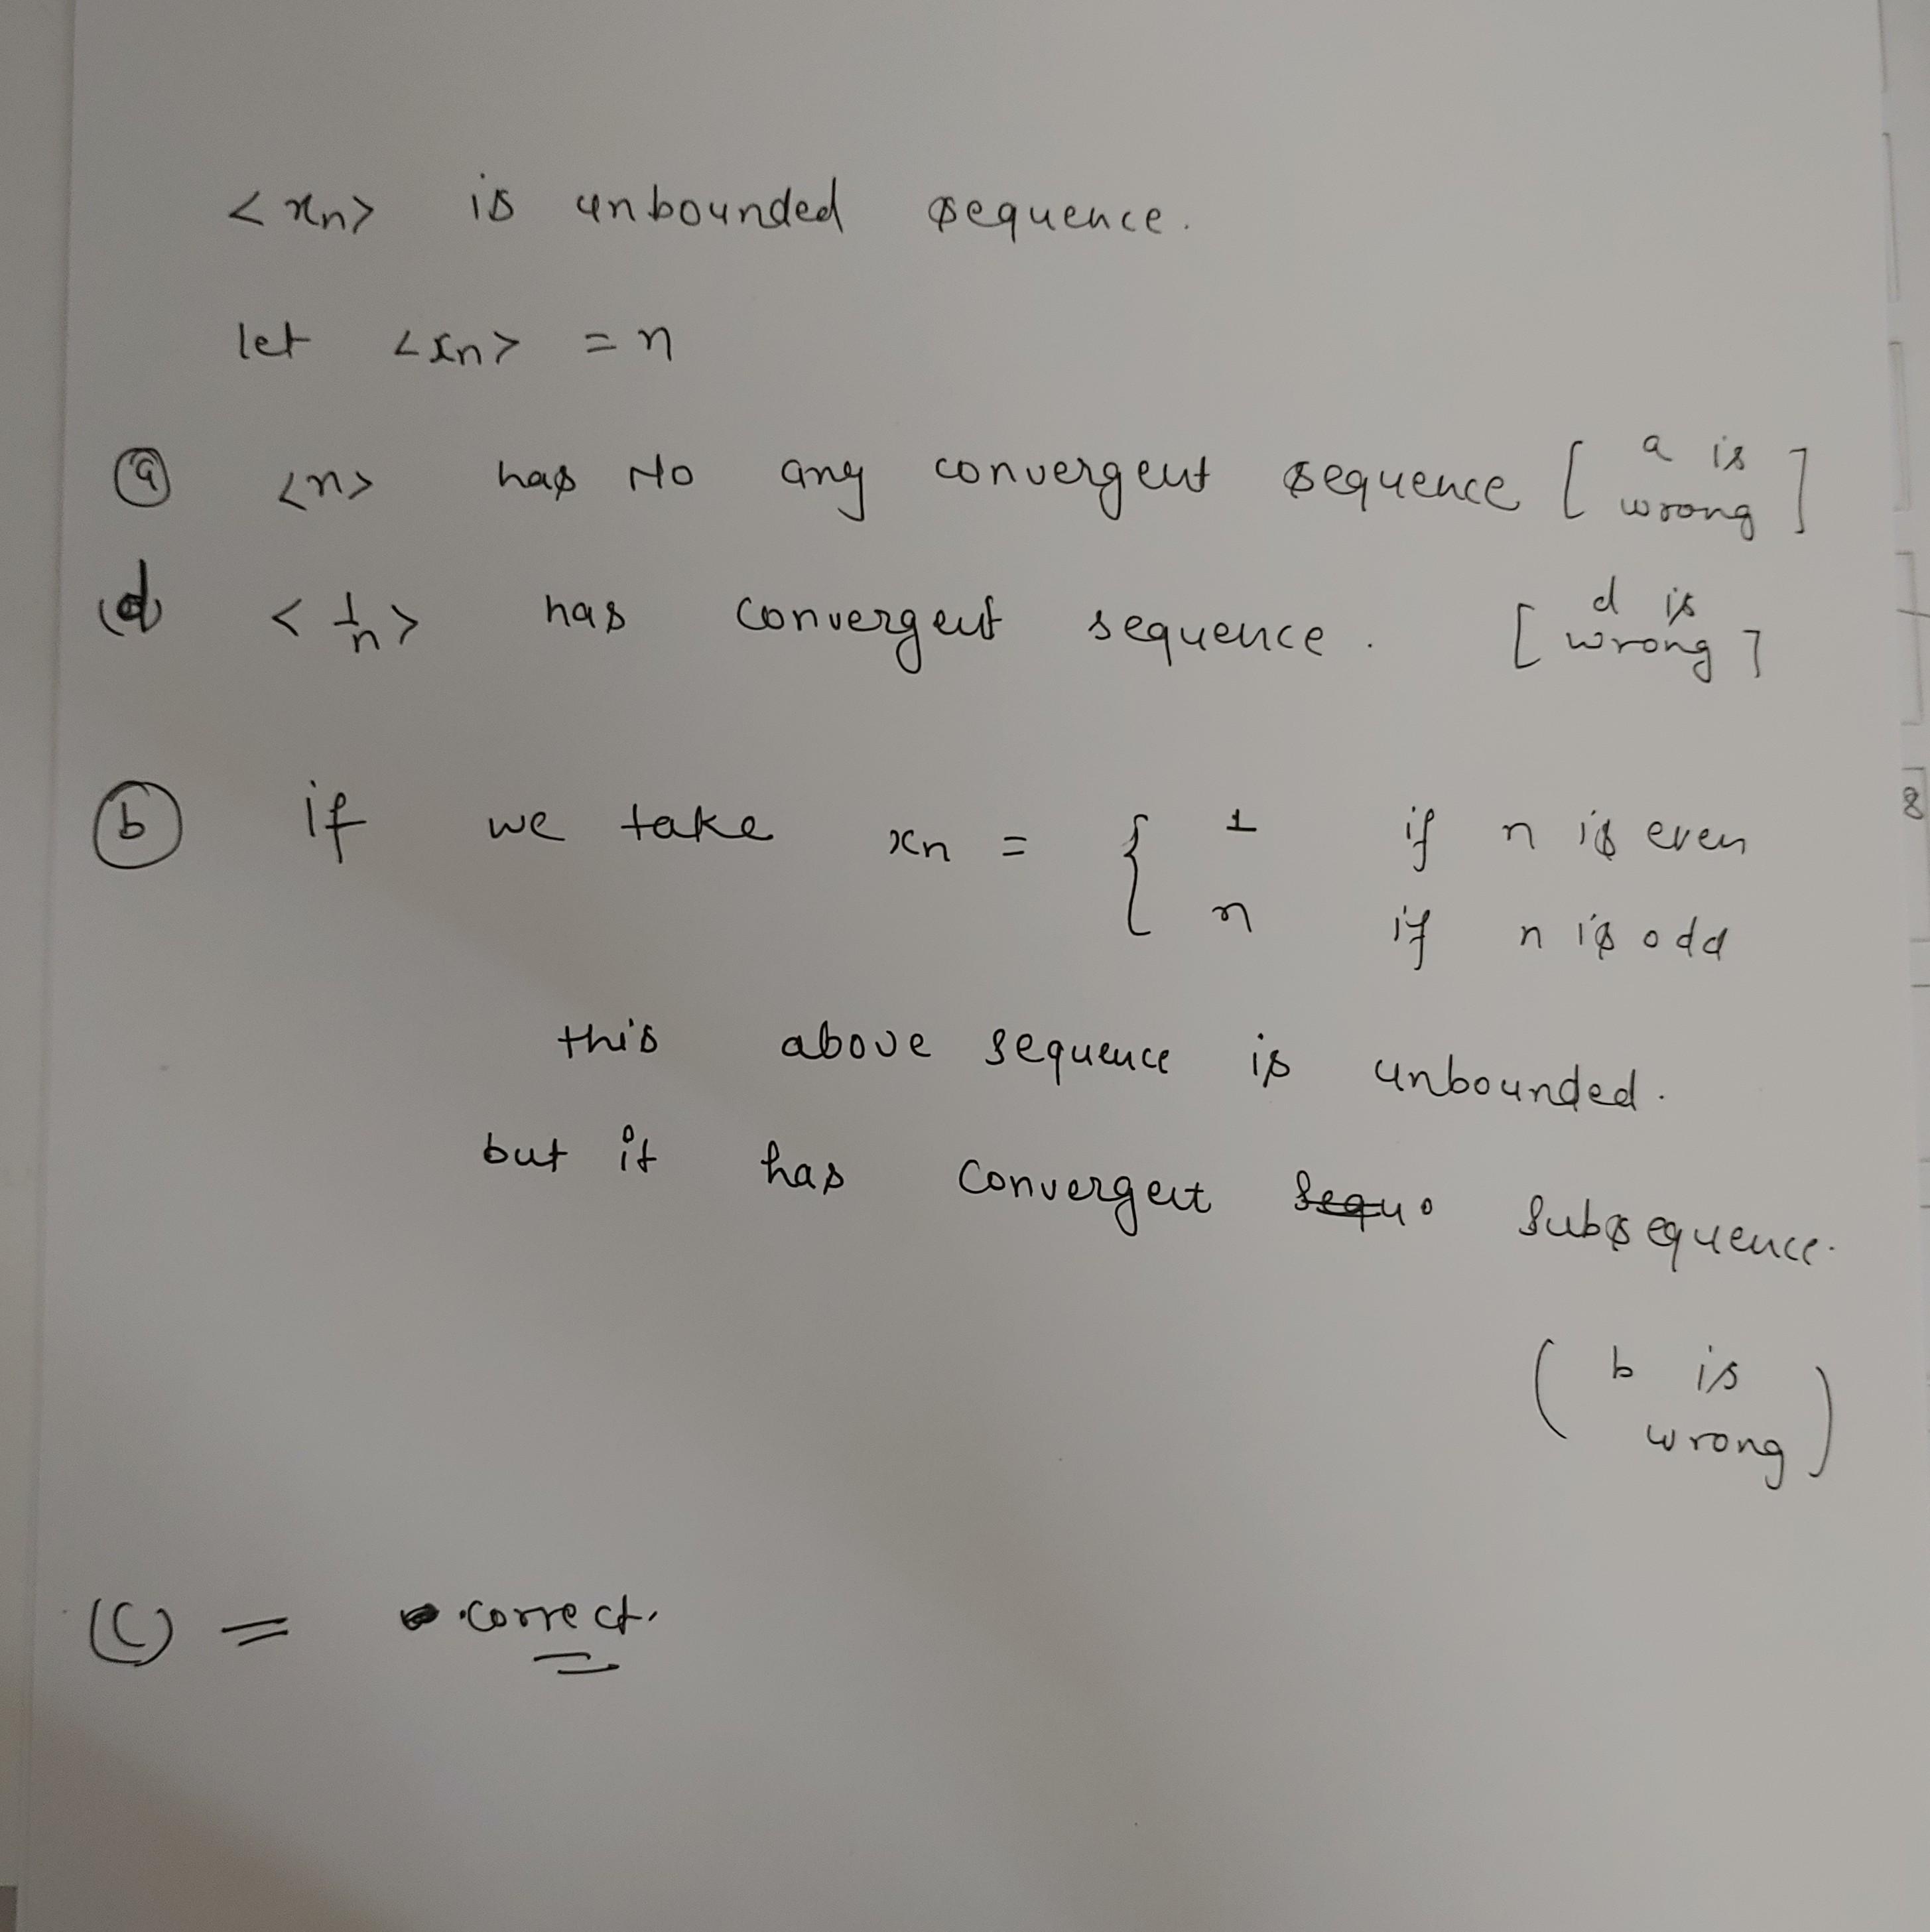 <xn> is unbounded sequence.
let <xn> = n
(a) <n> has No any convergent sequence [ a is wrong ]
(d) < 1/n > has convergent sequence. [ d is wrong ]
(b) if we take xn = { 1 if n is even
n if n is odd
this above sequence is unbounded.
but it has convergent sequ subsequence.
( b is wrong )
(C) = correct.
8